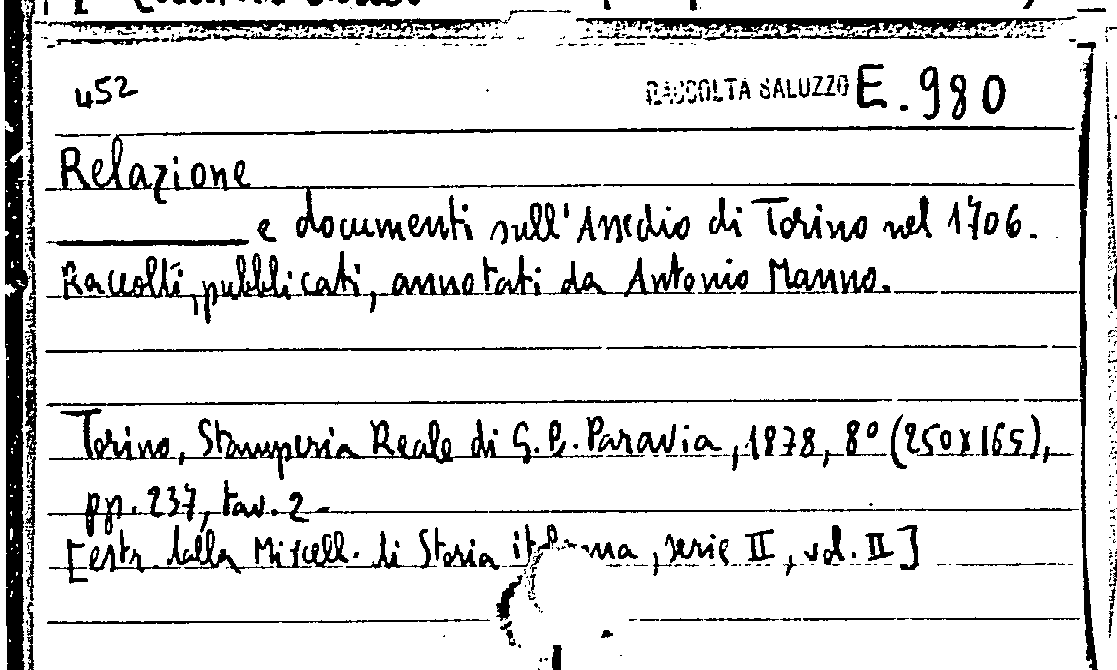 452
RACCOLTA SALUZZO E.980
Relazione
e documenti sull'Assedio di Torino nel 1706.
Raccolti, pubblicati, annotati da Antonio Manno.
Torino, Stamperia Reale di G.B. Paravia, 1878, 8° (250x165),
pp. 237, tav. 2-
[estr. dalla Miscell. di Storia italiana, serie II, vol. II]